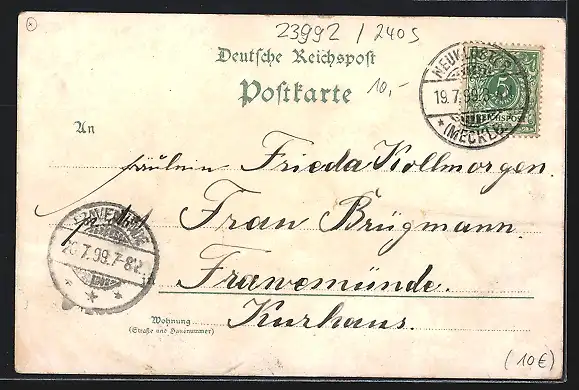 23992 / 2405
Deutsche Reichspost
10,-
Postkarte
NEUKLOSTER
19.7.99.
* (MECKLB)
5
REICHSPOST
An
Fräulein Frieda Kollmorgen.
Frau Brügmann.
TRAVEMÜNDE
20.7.99.7-8V.
in
Travemünde.
Kurhaus.
Wohnung
(Straße und Hausnummer)
(10€)